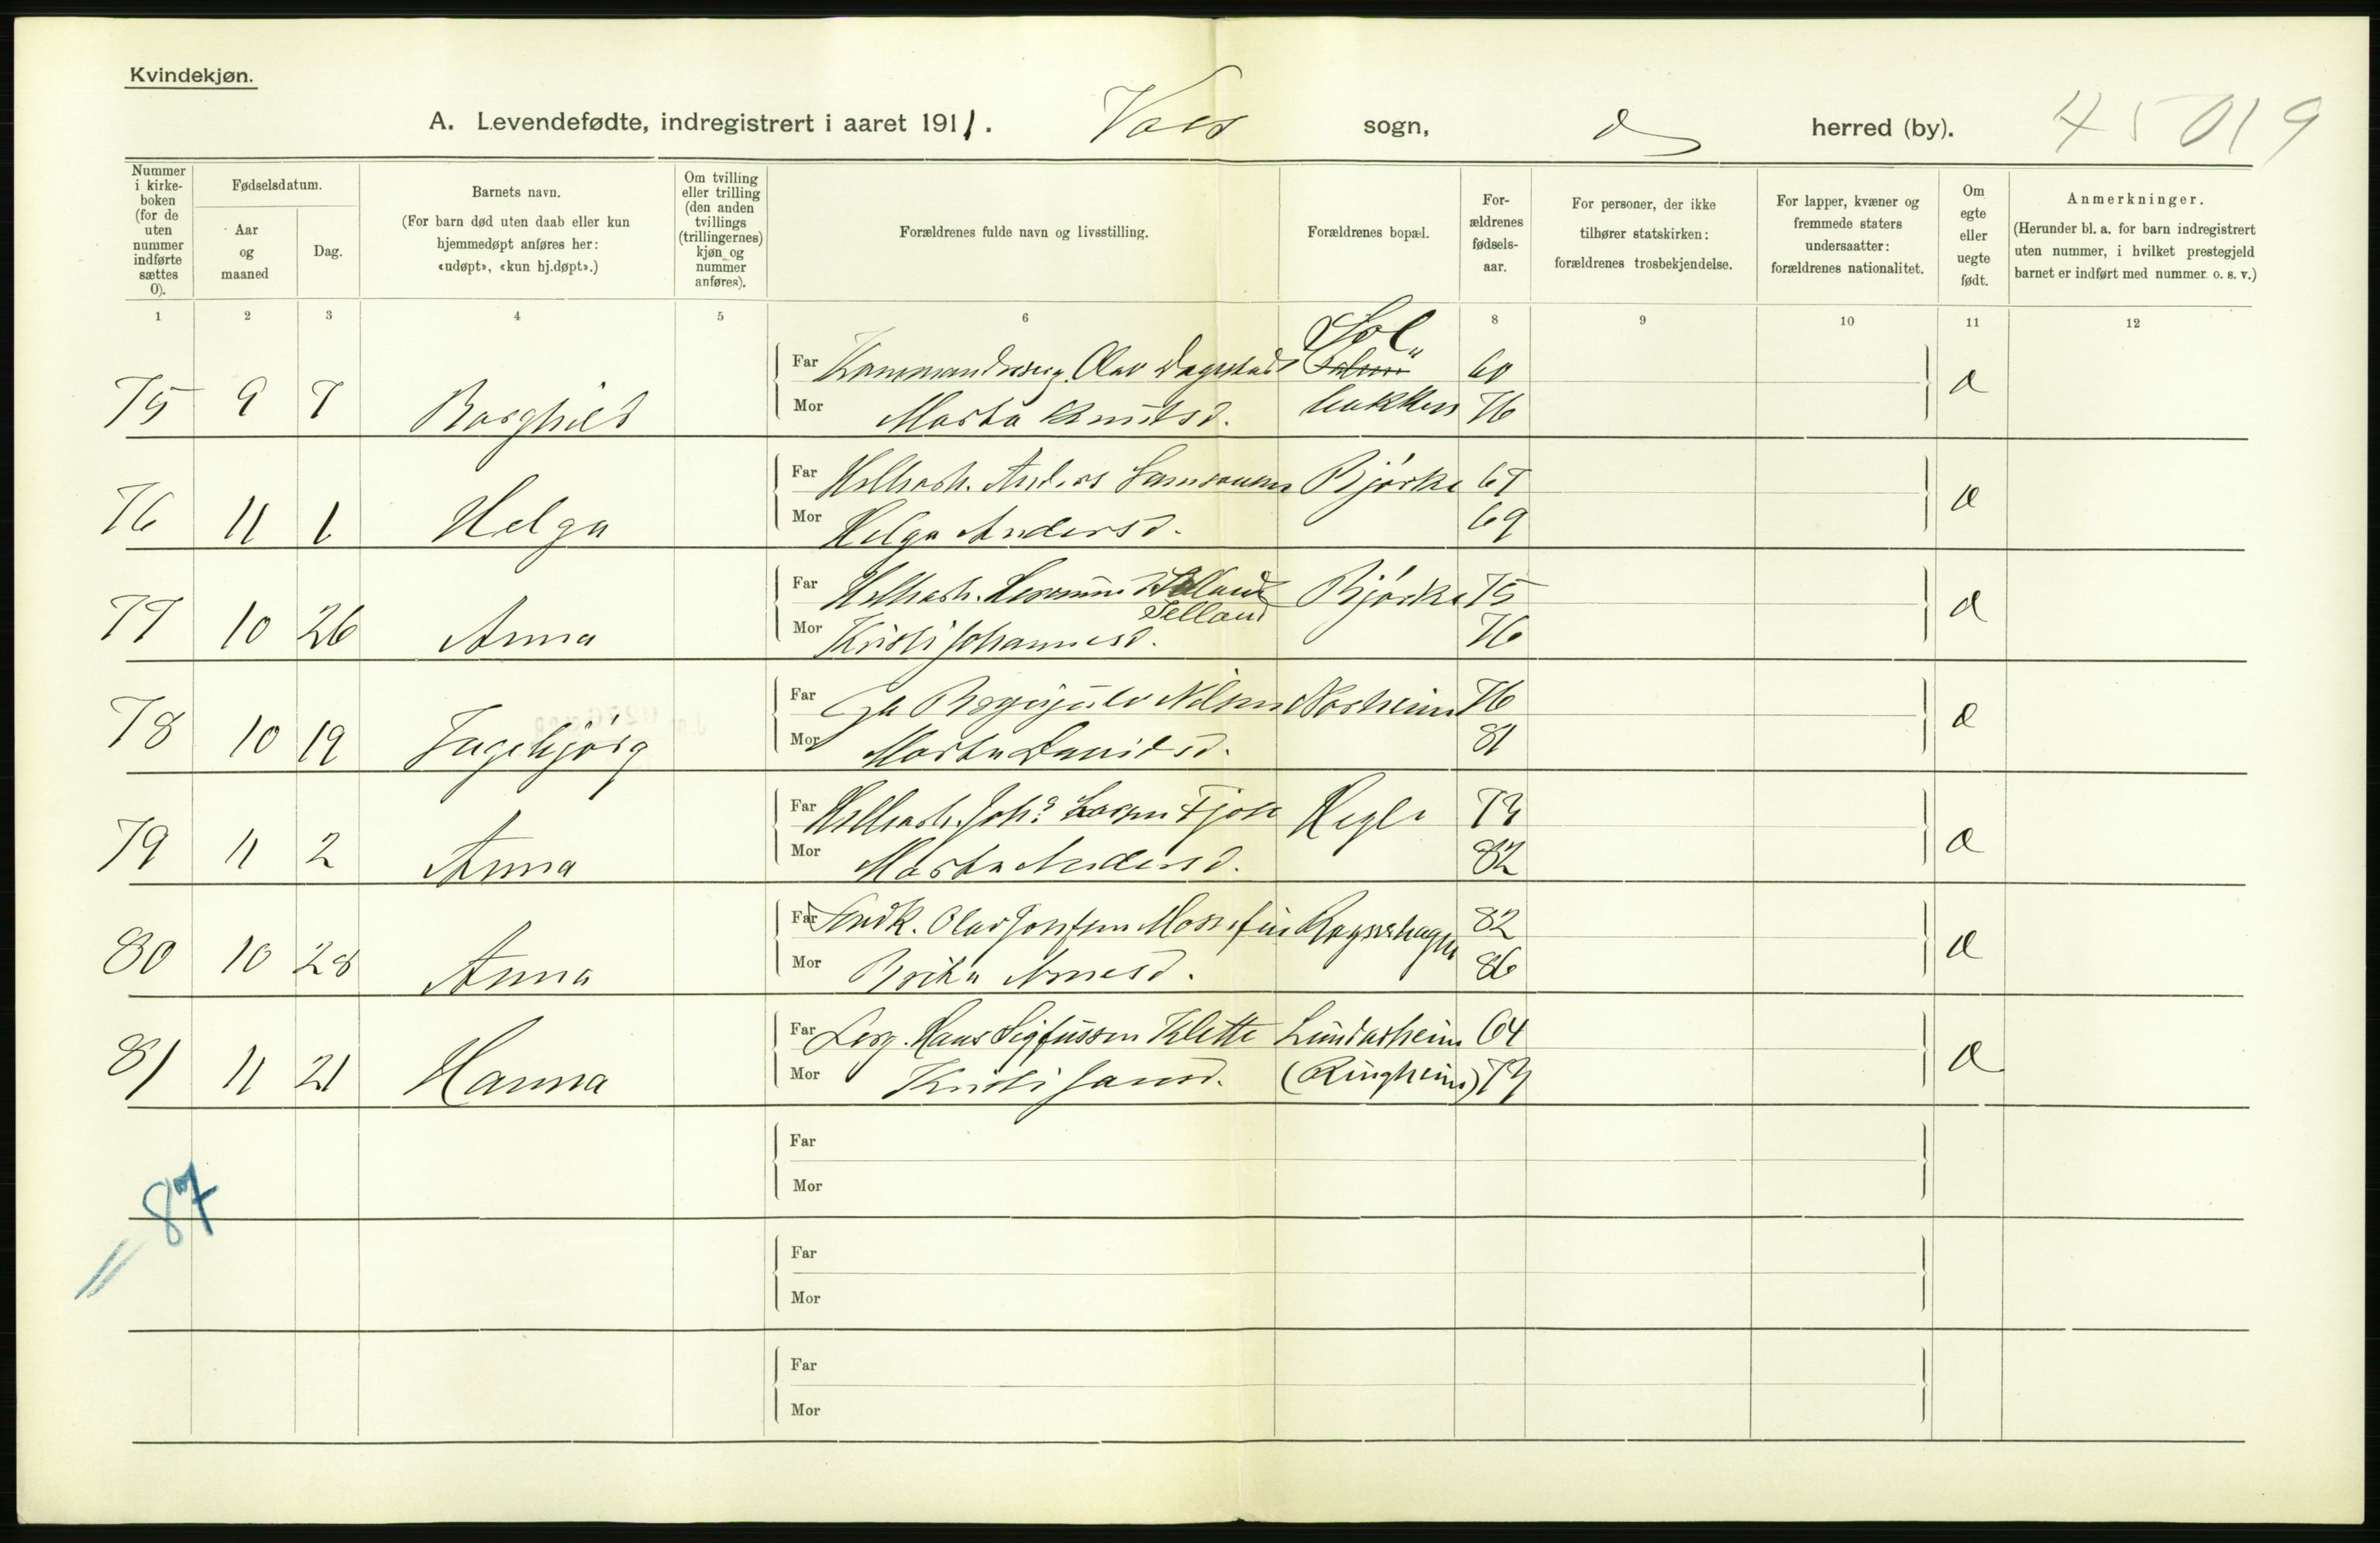 Kvindekjøn.
A. Levendefødte, indregistrert i aaret 1911. Voss sogn, herred (by). 45019
Nummer i kirkeboken (for de uten nummer indførte sættes 0).
Fødselsdatum.
Aar og maaned
Dag.
Barnets navn.
(For barn død uten daab eller kun hjemmedøpt anføres her: «udøpt», «kun hj.døpt».)
Om tvilling eller trilling (den anden tvillings (trillingernes) kjøn og nummer anføres).
Forældrenes fulde navn og livsstilling.
Forældrenes bopæl.
Forældrenes fødselsaar.
For personer, der ikke tilhører statskirken: forældrenes trosbekjendelse.
For lapper, kvæner og fremmede staters undersaatter: forældrenes nationalitet.
Om egte eller uegte født.
Anmerkninger.
(Herunder bl. a. for barn indregistrert uten nummer, i hvilket prestegjeld barnet er indført med nummer o. s. v.)
1 2 3 4 5 6 8 9 10 11 12
Sol
Far Olav Dagestad 60
75 9 7 Borghild Mor Marta Knutsd. bakken 76
Far Anders Bjørke 67
76 11 1 Helga Mor Helga Andersd. 69
Far Bjørke 75
Selland
77 10 26 Anna Mor Kristi Johannesd. 76
Far Brynjulv Nilsen 76
78 10 19 Ingebjørg Mor Marta Davidsd. 81
Far Johs Larsen 73
79 11 2 Anna Mor Marta Andersd. 82
Far Olav Josefsen 82
80 10 28 Anna Mor Brita Arnesd. 86
Far Hans Sigfussen Klette Lundarheim 64
81 11 21 Hanna Mor Kristi (Ringheim) 73
Far
Mor
87
Far
Mor
Far
Mor